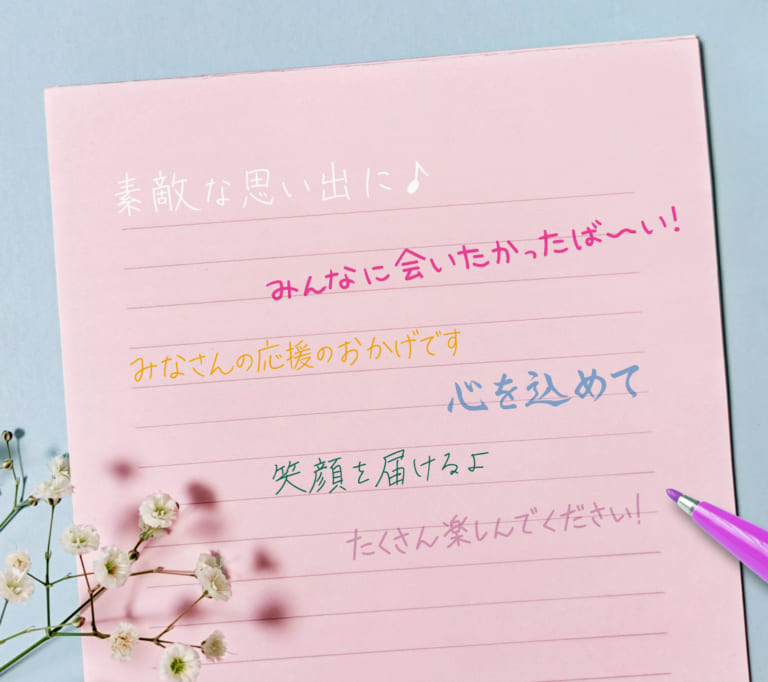 素敵な思い出に♪
みんなに会いたかったば〜い!
みなさんの応援のおかげです
心を込めて
笑顔を届けるよ
たくさん楽しんでください!